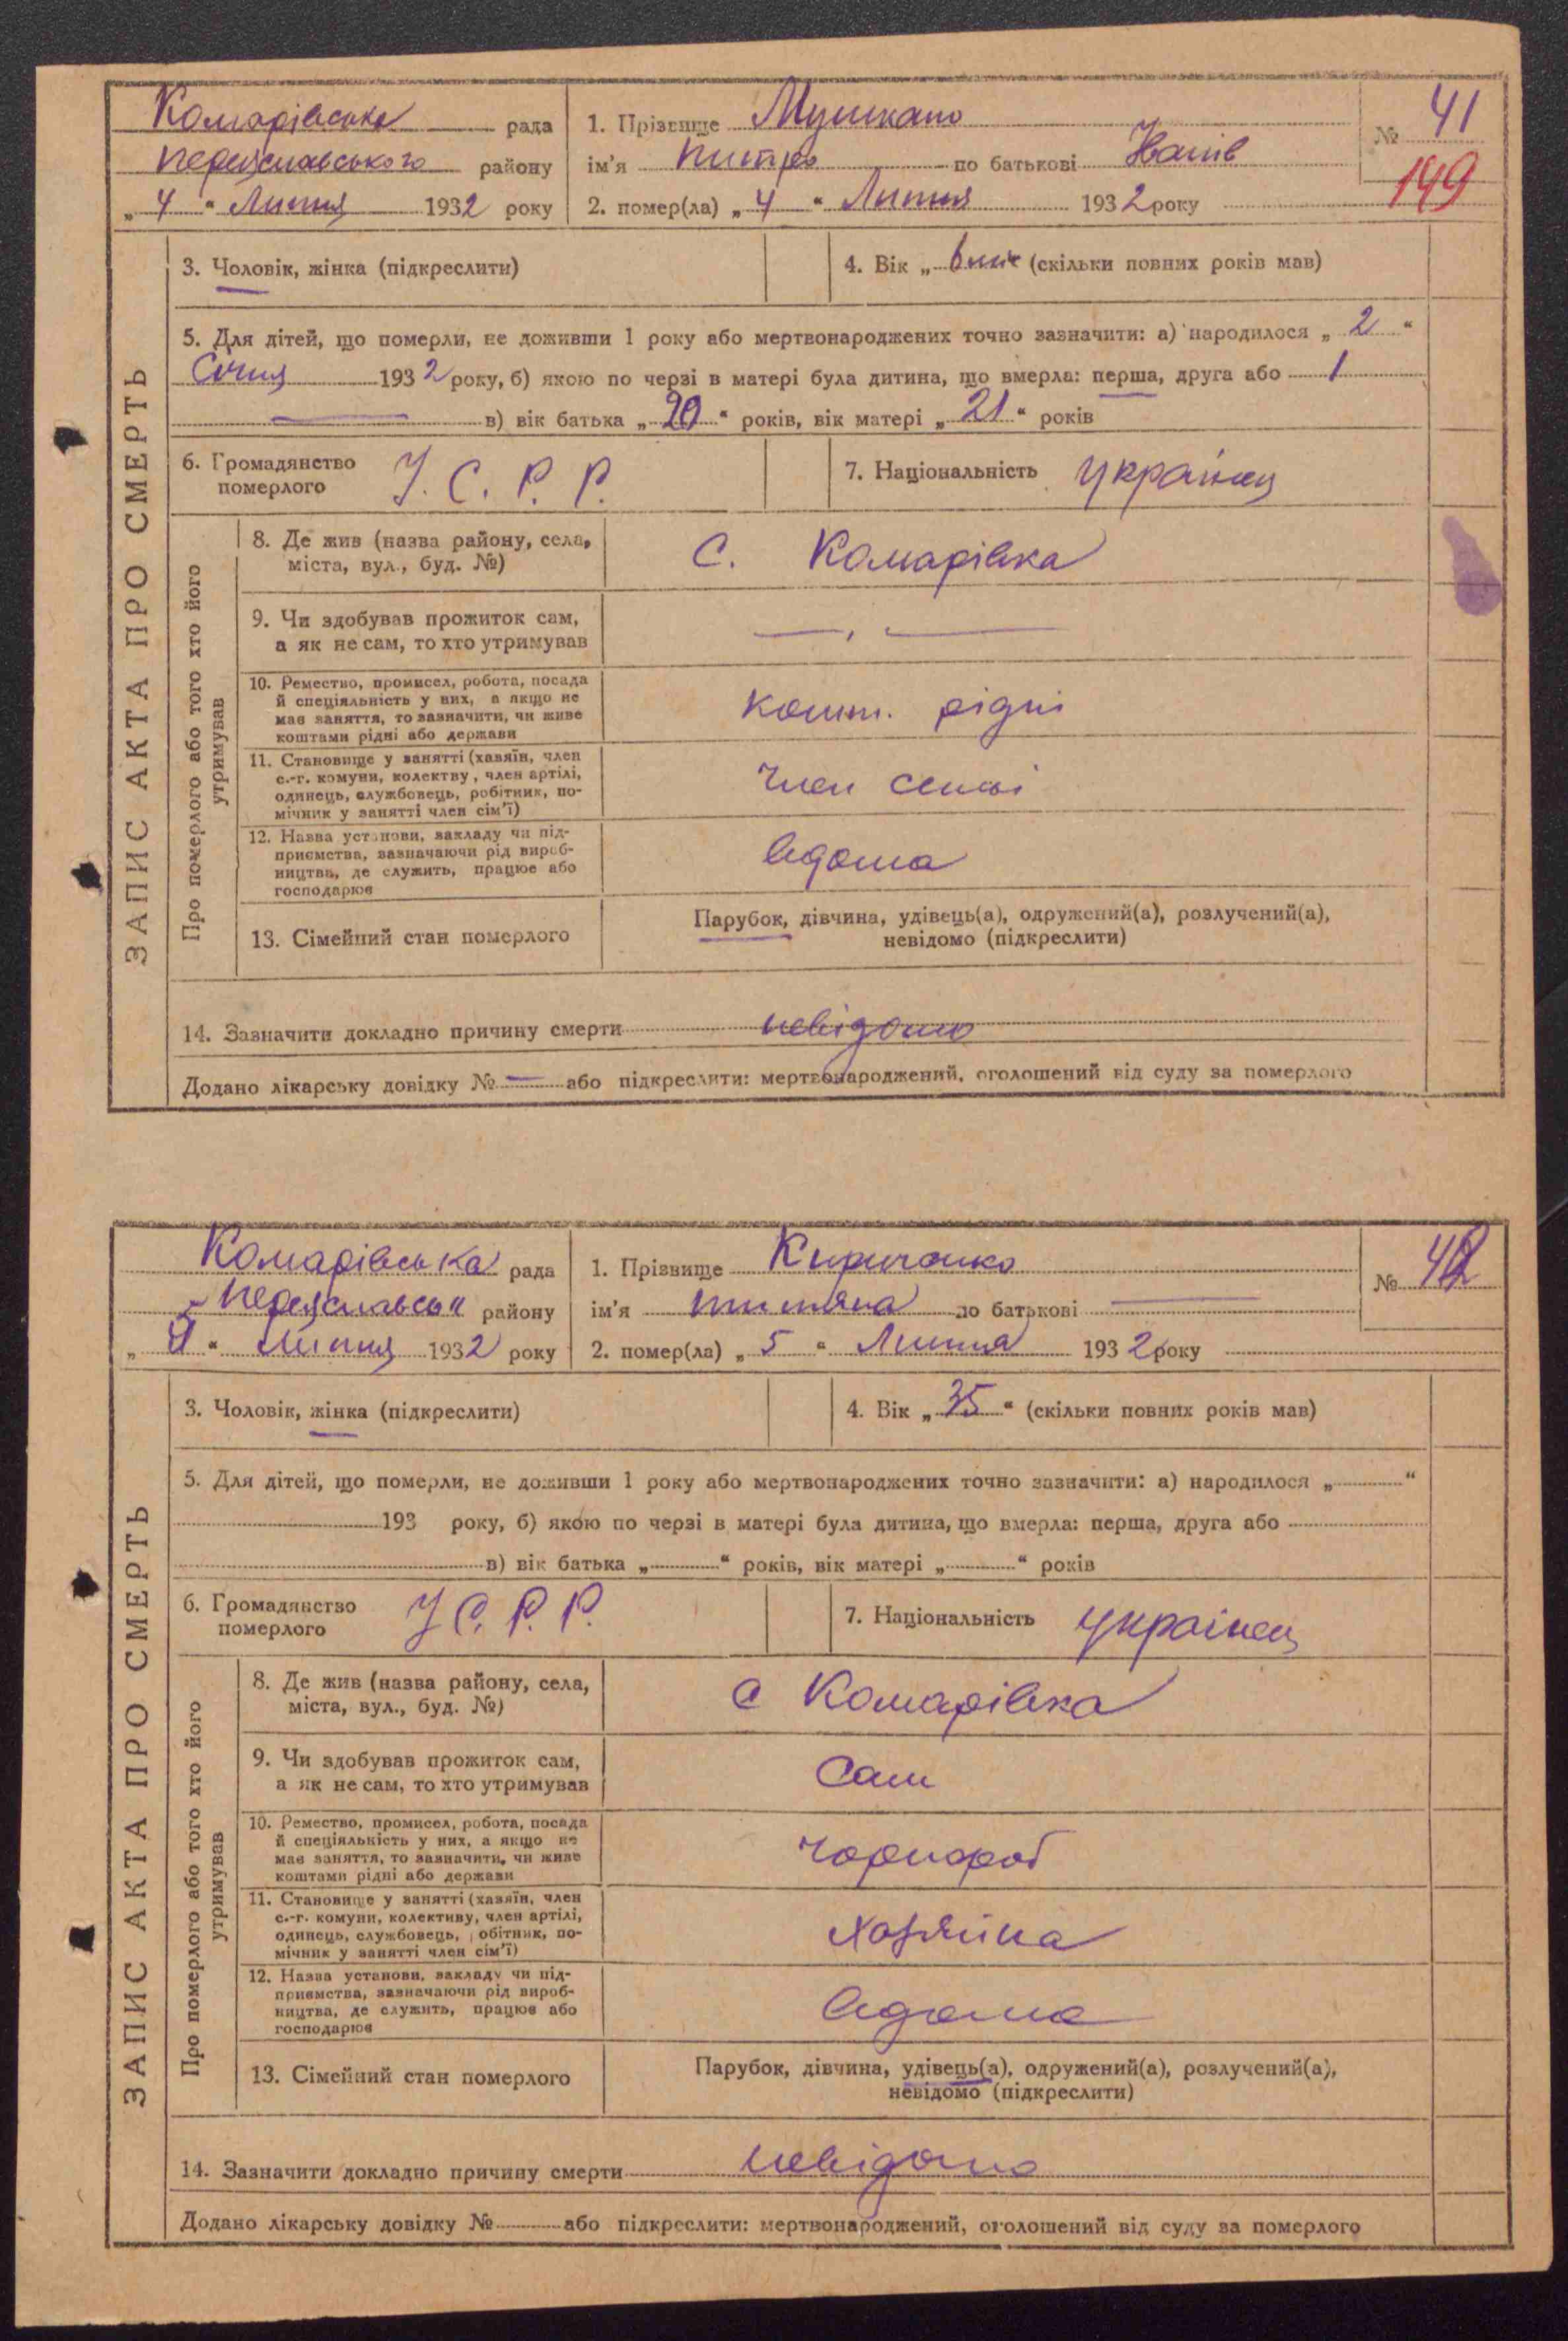 ЗАПИС АКТА ПРО СМЕРТЬ
Комарівська рада
Переяславського району
„ 4 “ Липня 1932 року
1. Прізвище Мушкало
ім'я Питро по батькові Іванів
2. помер(ла) „ 4 “ Липня 1932 року
№ 41
149
3. Чоловік, жінка (підкреслити)
4. Вік „ 6 міс “ (скільки повних років мав)
5. Для дітей, що померли, не доживши 1 року або мертвонароджених точно зазначити: а) народилося „ 2 “
Січня 1932 року, б) якою по черзі в матері була дитина, що вмерла: перша, друга або 1
— в) вік батька „ 20 “ років, вік матері „ 21 “ років
6. Громадянство
померлого
У. С. Р. Р.
7. Національність українец
Про померлого або того хто його
утримував
8. Де жив (назва району, села,
міста, вул., буд. №)
С. Комарівка
9. Чи здобував прожиток сам,
а як не сам, то хто утримував
— , —
10. Ремество, промисел, робота, посада
й спеціяльність у них, а якщо не
має заняття, то зазначити, чи живе
коштами рідні або держави
кошт. рідні
11. Становище у занятті (хазяїн, член
с.-г. комуни, колектву, член артілі,
одинець, службовець, робітник, по-
мічник у занятті член сім'ї)
член семьі
12. Назва установи, закладу чи під-
приємства, зазначаючи рід вироб-
ництва, де служить, працює або
господарює
вдома
13. Сімейний стан померлого
Парубок, дівчина, удівець(а), одружений(а), розлучений(а),
невідомо (підкреслити)
14. Зазначити докладно причину смерти невідомо
Додано лікарську довідку № — або підкреслити: мертвонароджений, оголошений від суду за померлого
ЗАПИС АКТА ПРО СМЕРТЬ
Комарівська рада
Переяславськ района
„ “ Липня 1932 року
1. Прізвище Кириченко
ім'я по батькові —
2. помер(ла) „ 5 “ Липня 1932 року
№ 42
3. Чоловік, жінка (підкреслити)
4. Вік „ 35 “ (скільки повних років мав)
5. Для дітей, що померли, не доживши 1 року або мертвонароджених точно зазначити: а) народилося „ “
193 року, б) якою по черзі в матері була дитина, що вмерла: перша, друга або
в) вік батька „ “ років, вік матері „ “ років
6. Громадянство
померлого
У С. Р. Р.
7. Національність українец
Про померлого або того хто його
утримував
8. Де жив (назва району, села,
міста, вул., буд. №)
с Комарівка
9. Чи здобував прожиток сам,
а як не сам, то хто утримував
Сам
10. Ремество, промисел, робота, посада
й спеціяльність у них, а якщо не
має заняття, то зазначити, чи живе
коштами рідні або держави
чорнороб
11. Становище у занятті (хазяїн, член
с.-г. комуни, колективу, член артілі,
одинець, службовець, робітник, по-
мічник у занятті член сім'ї)
хозяйка
12. Назва установи, закладу чи під-
приємства, зазначаючи рід вироб-
ництва, де служить, працює або
господарює
вдома
13. Сімейний стан померлого
Парубок, дівчина, удівець(а), одружений(а), розлучений(а),
невідомо (підкреслити)
14. Зазначити докладно причину смерти невідомо
Додано лікарську довідку № або підкреслити: мертвонароджений, оголошений від суду за померлого